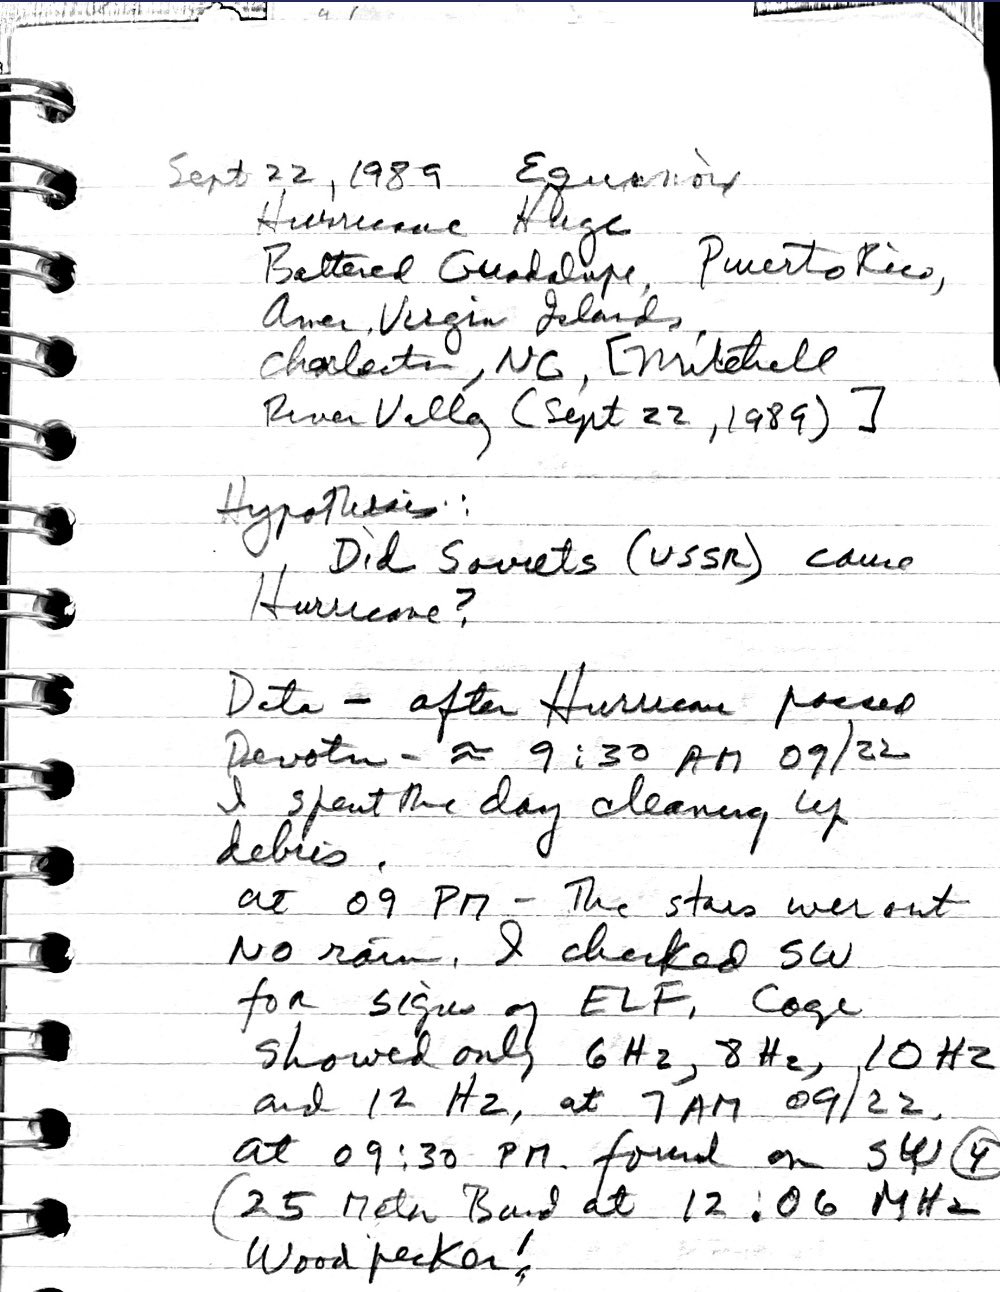 Sept 22, 1989 Equinox
Hurricane Hugo
Battered Guadalupe, Puerto Rico,
Amer. Virgin Islands,
Charleston, NC, [Mitchell
River Valley (Sept 22, 1989)]
Hypothesis:
Did Soviets (USSR) cause
Hurricane?
Data - after Hurricane passed
Devotn - ≈ 9:30 AM 09/22
I spent the day cleaning up
debris.
at 09 PM - The stars were out
No rain. I checked SW
for signs of ELF. Coge
showed only 6 Hz, 8 Hz, 10 Hz
and 12 Hz, at 7 AM 09/22.
at 09:30 PM. found on SW 4
(25 Meter Band at 12:06 MHz
Woodpecker!